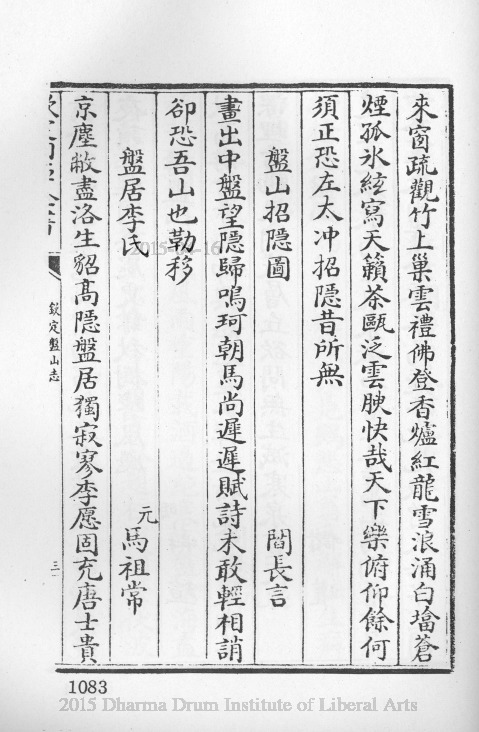 來窗疏觀竹上巢雲禮佛登香爐紅龍雪浪涌白墖蒼
煙孤氷絃寫天籟茶甌泛雲腴快哉天下樂俯仰餘何
須正恐左太冲招隱昔所無
盤山招隱圖 閻長言
畫出中盤望隱歸鳴珂朝馬尚遲遲賦詩未敢輕相誚
卻恐吾山也勒移
盤居李氏 元馬祖常
京塵敝盡洛生貂髙隱盤居獨寂寥李愿固充唐士貴
欽定盤山志
1083
2015 Dharma Drum Institute of Liberal Arts